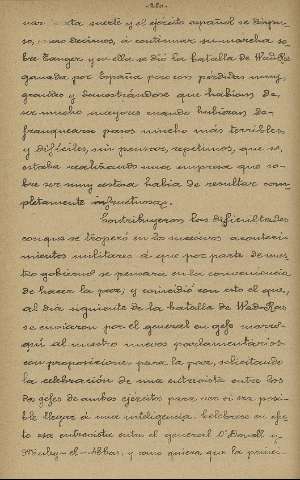 -220-
nar esta suerte y el ejército español se dispu-
so, como decimos, á continuar su marcha so-
bre Tanger y en ella se dió la batalla de Wad-Ras
ganada por España pero con pérdidas muy
grandes y demostrándose que habian de
ser mucho mayores cuando hubieran de
franquearse pasos mucho más terribles
y difíciles, sin pensar, repetimos, que se
estaba realizando una empresa que so-
bre ser muy costosa habia de resultar com-
pletamente infructuosa.
Contribuyeron las dificultades
con que se tropezó en los sucesivos aconteci-
mientos militares á que por parte de nues-
tro gobierno se pensara en la conveniencia
de hacer la paz, y coincidió con esto el que,
al dia siguiente de la batalla de Wad-Ras
se enviaron por el general en gefe marro-
quí al nuestro nuevos parlamentarios
con proposiciones para la paz, solicitando
la celebración de una entrevista entre los
gefes de ambos ejércitos para ver si era posi-
ble llegar á una inteligencia. Celebrose en efec-
to esa entrevista entre el general O'Donell y
Muley-el-Abbas, y como quiera que la prime-